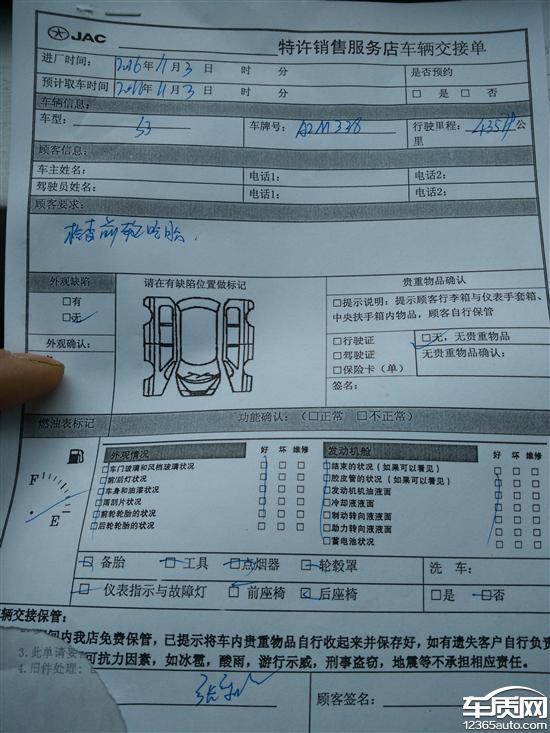 JAC 特许销售服务店车辆交接单
进厂时间: 2016年11月3日 时 分 是否预约
预计取车时间 2016年11月3日 时 分 □ 是 □ 否
车辆信息:
车型: S3 车牌号: 行驶里程: 公里
顾客信息:
车主姓名: 电话1: 电话2:
驾驶员姓名: 电话1: 电话2:
顾客要求:
检查前轮吃胎.
外观缺陷 请在有缺陷位置做标记 贵重物品确认
□有
□无
外观确认:
□提示说明: 提示顾客行李箱与仪表手套箱、
中央扶手箱内物品, 顾客自行保管
□行驶证 □无, 无贵重物品
□驾驶证 无贵重物品确认:
□保险卡(单)
签名:
燃油表标记 功能确认: (□正常 □不正常)
F
E
外观情况 好 坏 维修
□车门玻璃和风档玻璃状况
□前/后灯状况
□车身和油漆状况
□雨刮片状况
□前轮轮胎的状况
□后轮轮胎的状况
发动机舱 好 坏 维修
□结束的状况 (如果可以看见)
□胶皮管的状况 (如果可以看见)
□发动机机油液面
□冷却液液面
□制动转向液液面
□助力转向液液面
□蓄电池状况
□ 备胎 □ 工具 □点烟器 □ 轮毂罩 洗 车:
□ 仪表指示与故障灯 □ 前座椅 □后座椅 □是 □否
辆交接保管:
间内我店免费保管, 已提示将车内贵重物品自行收起来并保存好, 如有遗失客户自行负责
3. 此单请要
可抗力因素, 如冰雹, 酸雨, 游行示威, 刑事盗窃, 地震等不承担相应责任。
4. 旧件处理:
顾客签名:
车质网
www.12365auto.com